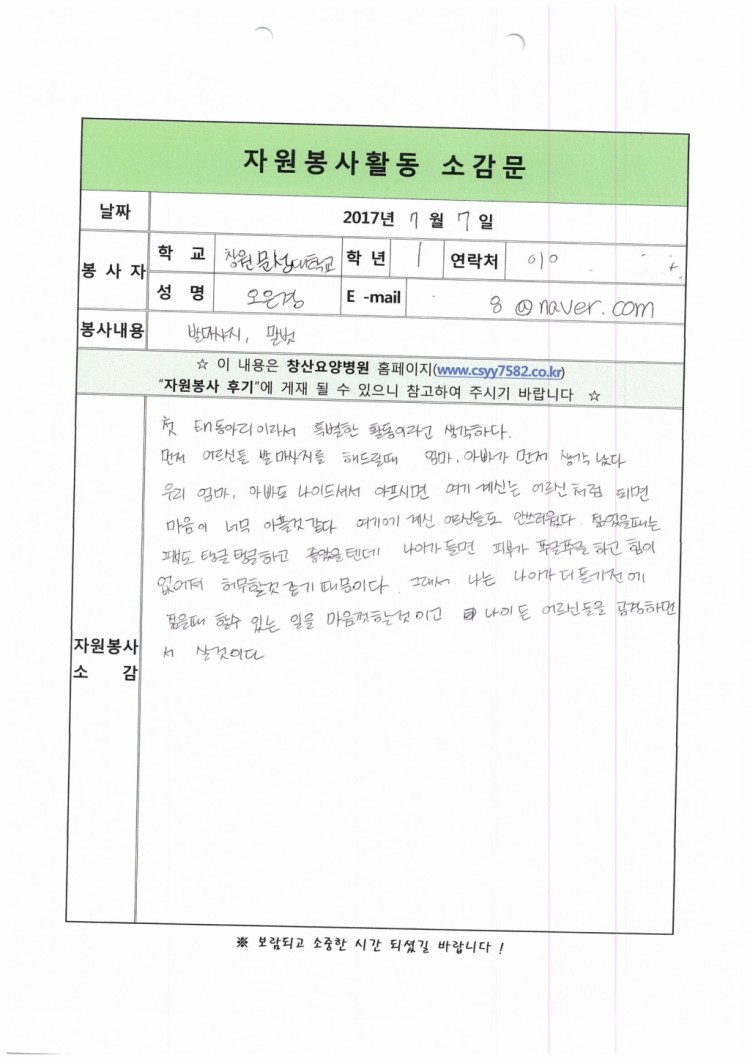 자원봉사활동 소감문
날짜 2017년 7 월 7 일
봉 사 자 학 교 창원문성대학교 학 년 1 연락처 010
성 명 오은경 E -mail 8 @naver.com
봉사내용 발마사지, 말벗
☆ 이 내용은 창산요양병원 홈페이지(www.csyy7582.co.kr)
"자원봉사 후기"에 게재 될 수 있으니 참고하여 주시기 바랍니다 ☆
자원봉사
소 감
첫 동아리이라서 특별한 활동이라고 생각하다.
먼저 어르신들 발마사지를 해드릴때 엄마. 아빠가 먼저 생각 났다
우리 엄마, 아빠도 나이드셔서 아프시면 여기 계신는 어르신 처럼 되면
마음이 너무 아플것 같다 여기에 계신 어르신들도 안쓰러웠다. 젊었을때는
탱글탱글하고 좋았을텐데 나이가 들면 피부가 쭈글쭈글 하고 힘이
없어져 허무할것 같기 때문이다. 그래서 나는 나이가 더 들기전에
젊을때 할수 있는 일을 마음껏하는것 이고 나이 든 어르신들을 공경하면
서 살것이다
※ 보람되고 소중한 시간 되셨길 바랍니다 !